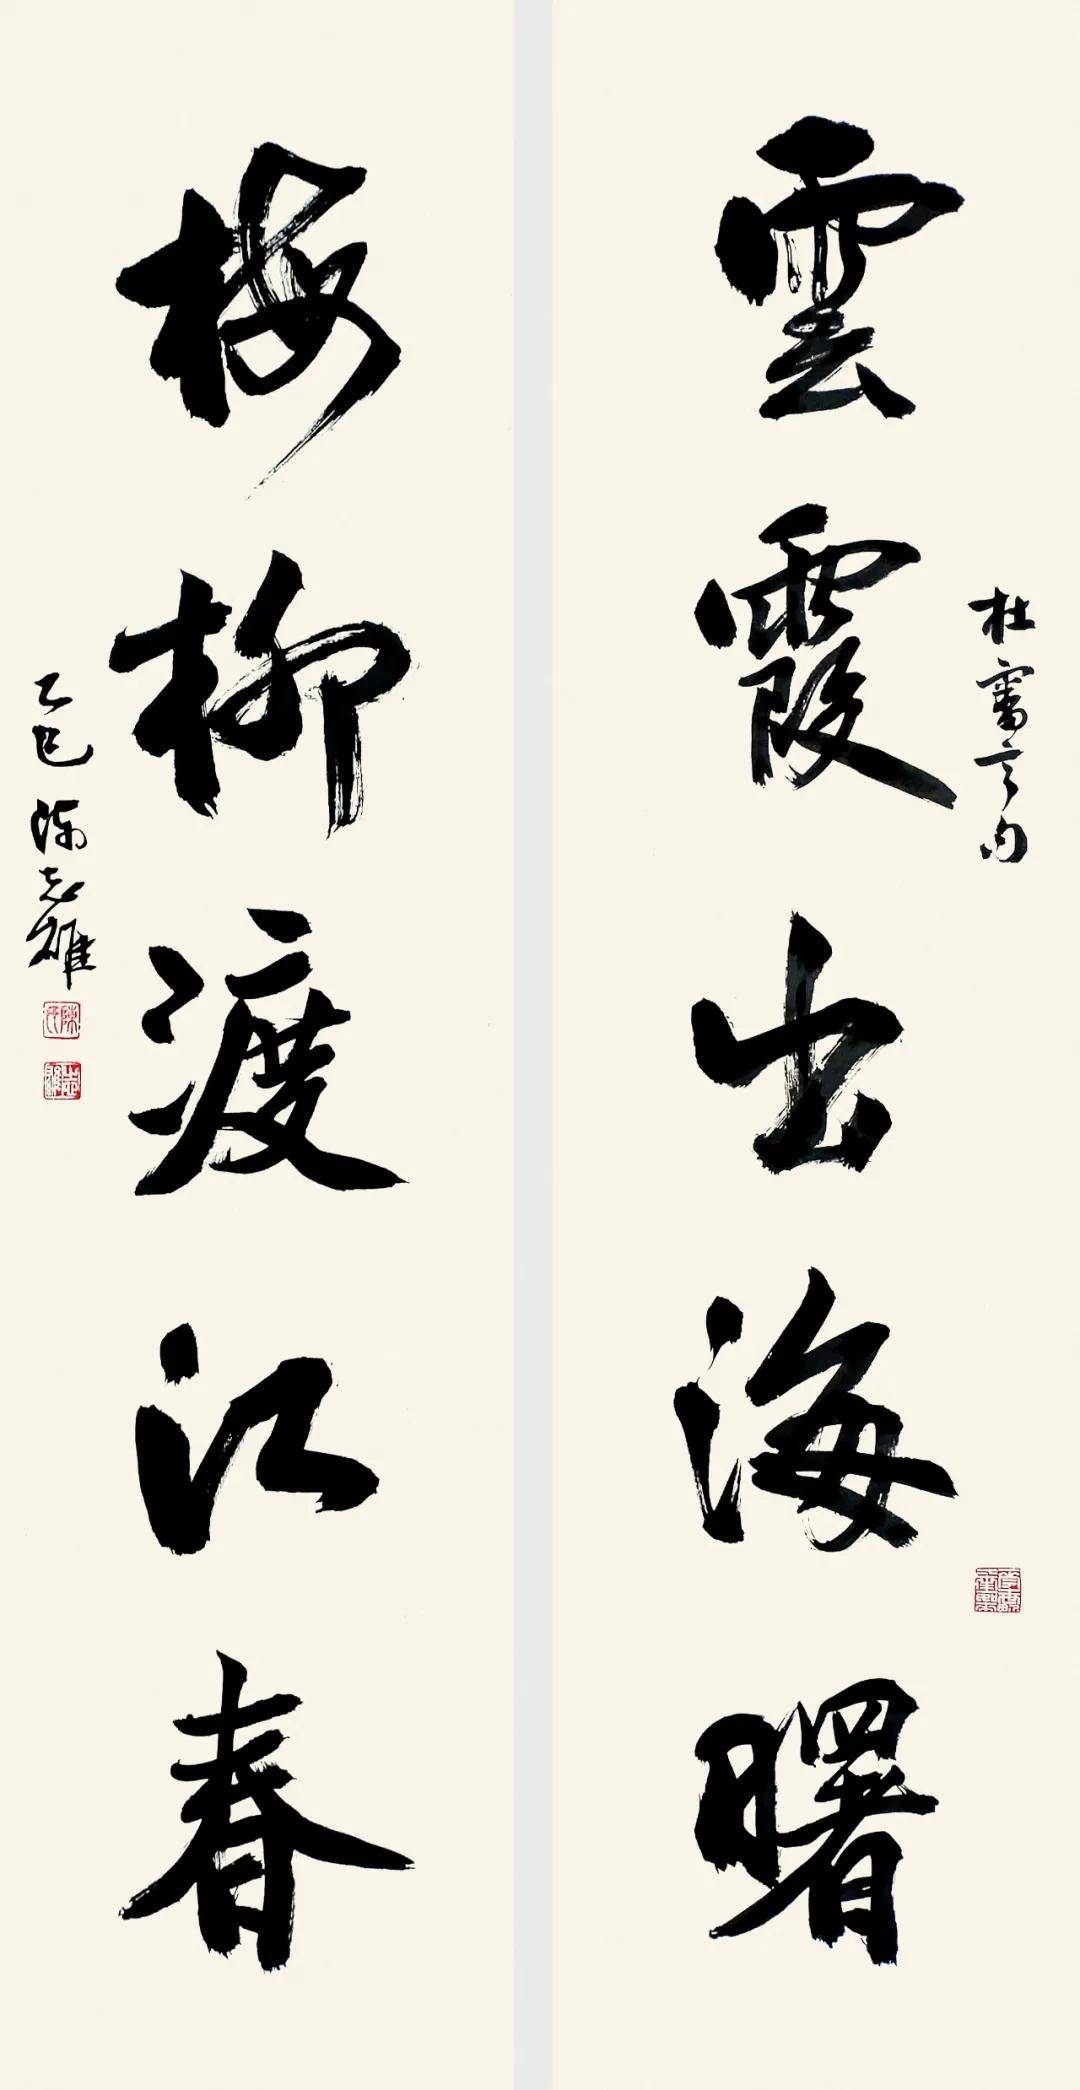 雲霞出海曙
杜審言句
梅柳渡江春
乙巳 陳志雄
陳氏
志雄